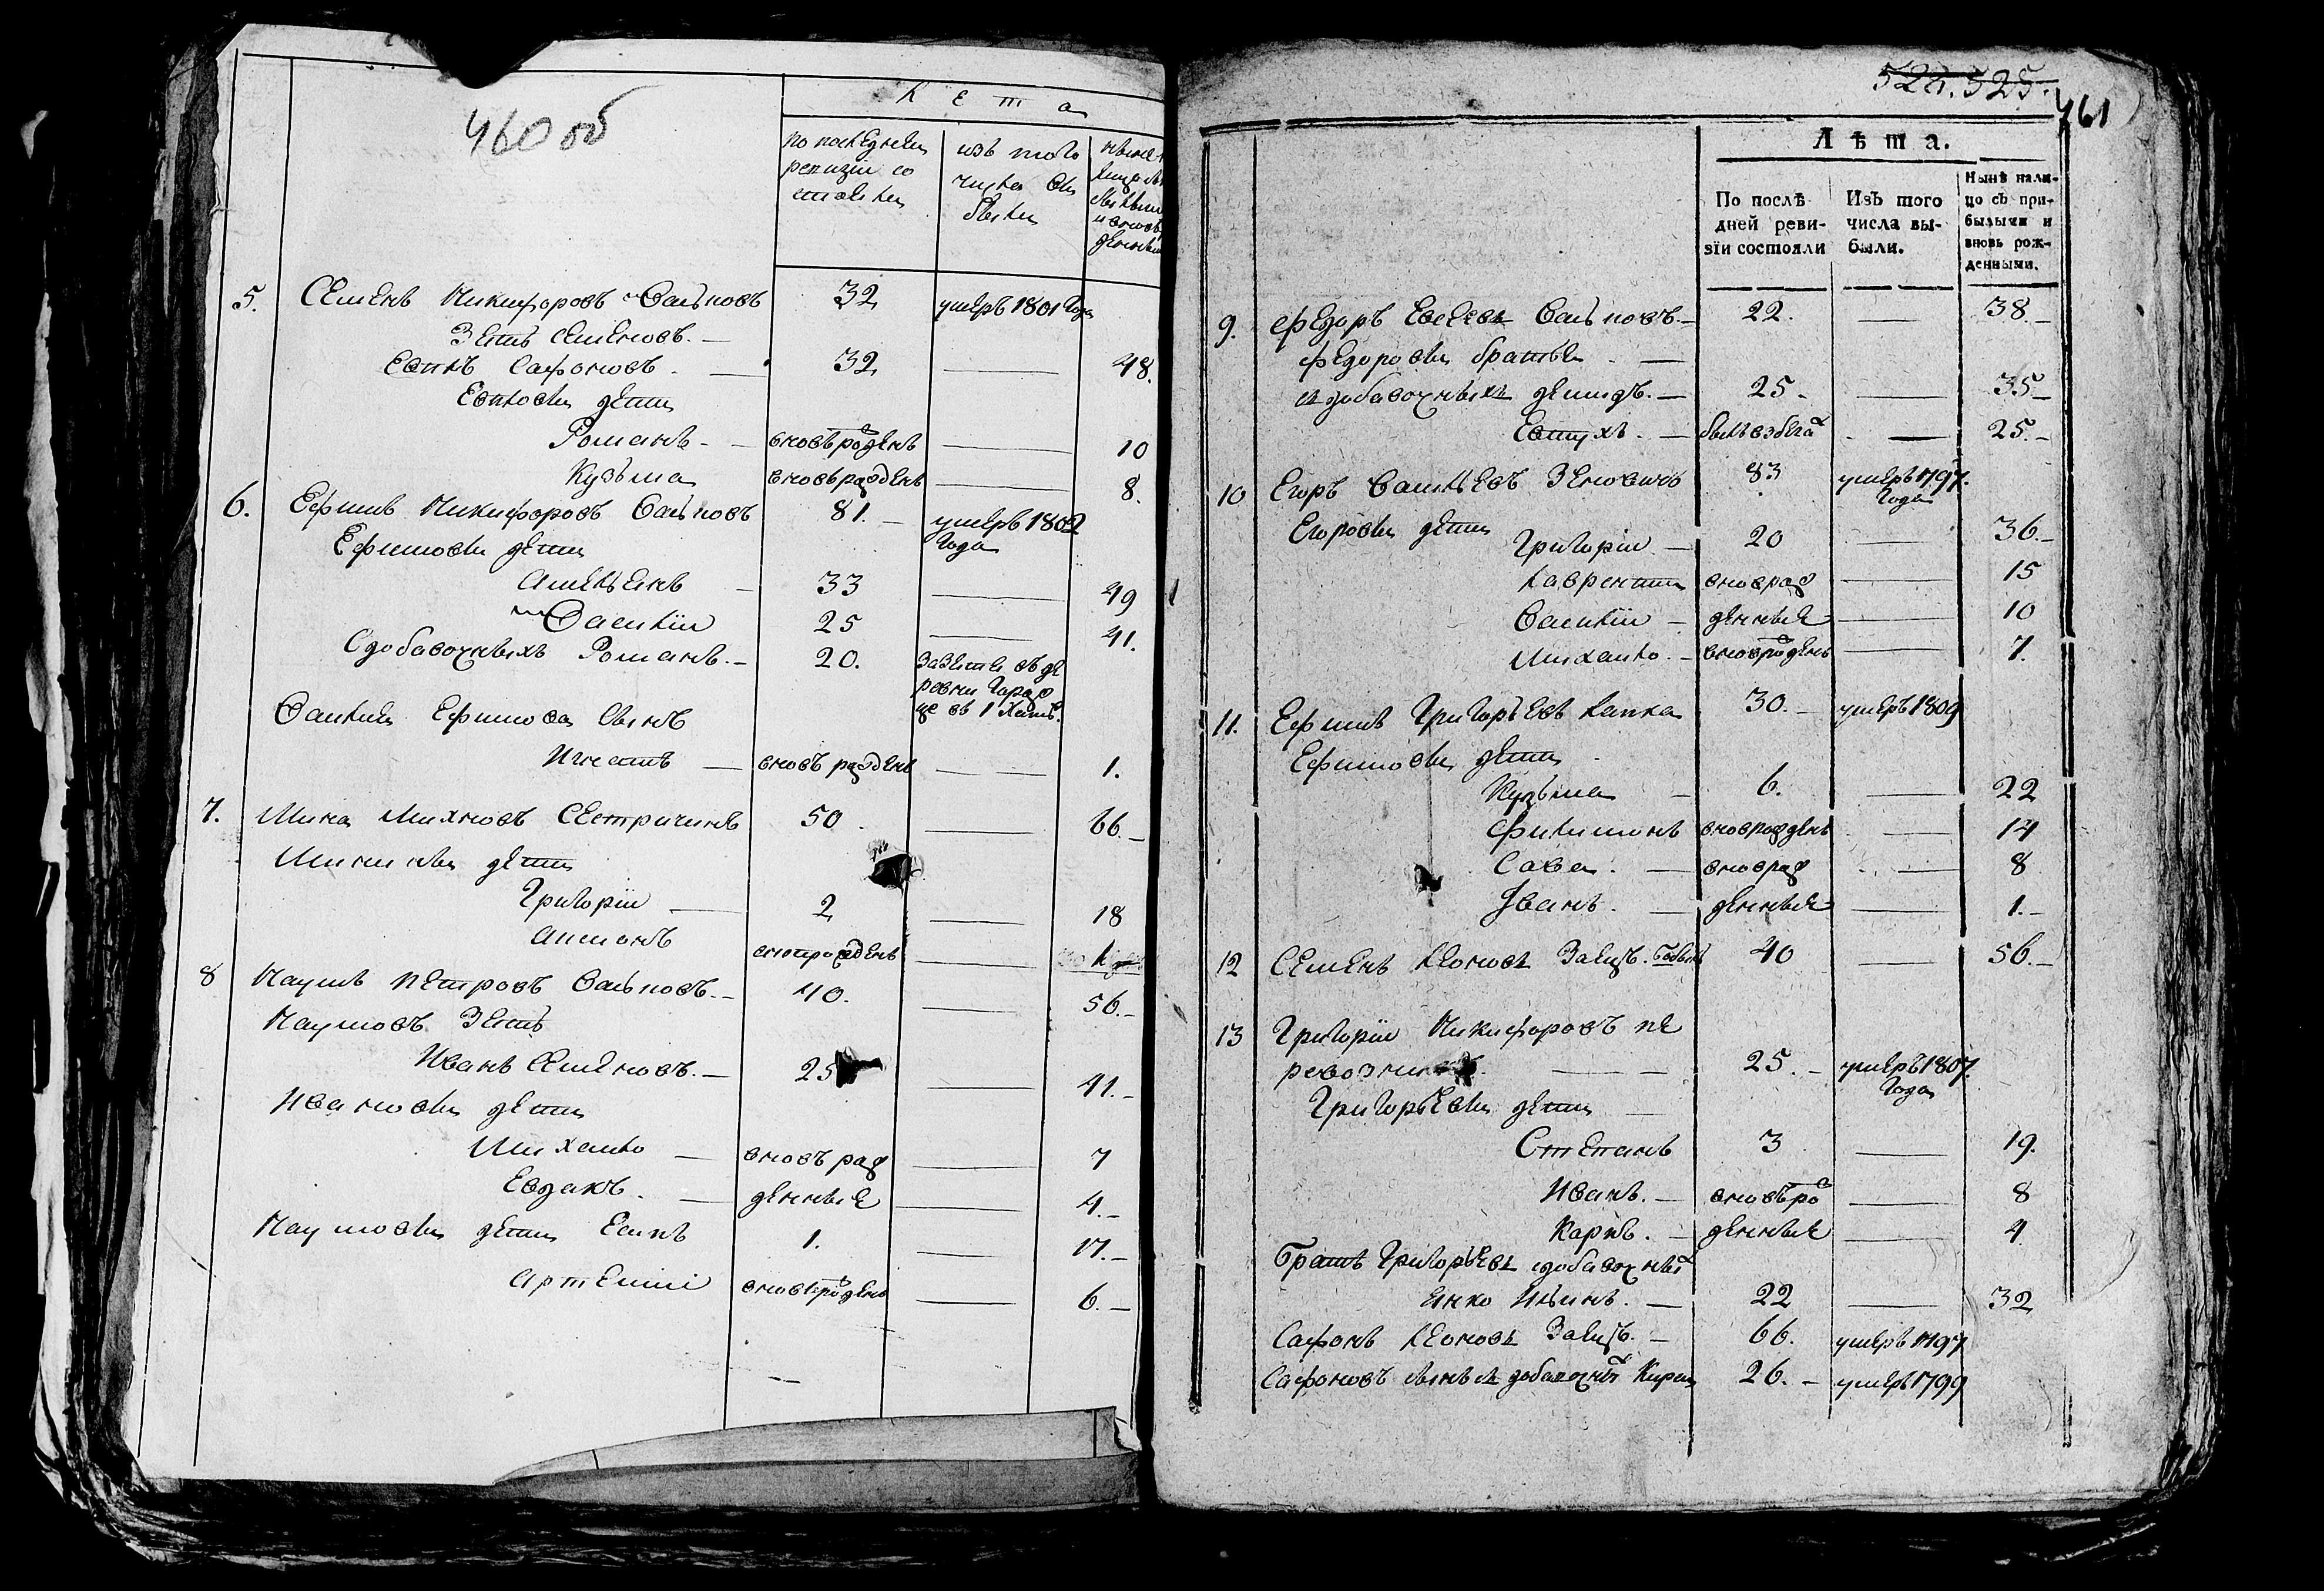 460 об
Лета
по последней ревизии состояли
изъ того числа выбыли
5. Семенъ Никифоровъ Васьковъ 32 умеръ 1801 года
Зеть Семеновъ. —
Евпкъ Сафоновъ. — 32 — 48.
дети
Романъ — вновь рожденъ — 10
Кузьма вновь рожденъ — 8.
6. Ефимъ Никифоровъ Васьковъ 81. — умеръ 1802 года
Ефимовы дети
Амельянъ — 33 — 49
Василiи 25 — 41.
С добавочныхъ Романъ. — 20. въ деревни в 1
Василия Ефимова сынъ
Игнатъ — вновь рожденъ — 1.
7. Мина Михновъ Сестричинъ 50. — 66. —
Минины дети
Григорiи — 2 — 18
вновь рожденъ —
8 Наумъ Петровъ Васьковъ. — 40. — 56. —
Наумовъ Зеть
Иванъ Семеновъ. — 25 — 41. —
Ивановы дети
Михаило — вновь рож — 7
Евдакъ. — денные — 4. —
Наумовы дети Есипъ 1. — 17. —
Артемиi вновь рожденъ — 6. —
522. 525.
461
Лѣта.
По послѣдней ревизїи состояли
Изъ того числа выбыли.
Нынѣ налицо съ прибылыми и вновь рожденными.
9. Федоръ Евсеевъ Васьковъ. — 22. — 38. —
Федоровы братья. —
из добавочныхъ демидъ. — 25. — 35 —
Евтухъ. — былъ в бегах — 25. —
10 Егоръ Савельевъ Зеновичь 83. умеръ 1797. года
Егоровы дети
Григории — 20 — 36. —
Лаврентии вновь рож — 15
Василiи — денные — 10
Михаило. — вновь рожденъ — 7.
11. Ефимъ Григорьевъ Лапка 30. — умеръ 1809
Ефимовы дети.
Кузьма — 6. — 22
Филимонъ вновь рожденъ — 14
Сава. — вновь рож — 8
Иванъ. — денные — 1. —
12 Семенъ Леоновъ Заецъ. 40 — 56. —
13 Григорiи Никифоровъ пе
ревозни — 25. — умеръ 1807. года
Григорьевы дети —
Степанъ 3 — 19.
Иванъ. — вновь ро — 8
Карпъ. — денные — 4
братъ Григорьевъ з добавочных
Янко Ильинъ. — 22 — 32
Сафонъ Леоновъ Заецъ. — 66. умеръ 1797
Сафоновъ сынъ из добавочных Кирей 26. — умеръ 1799